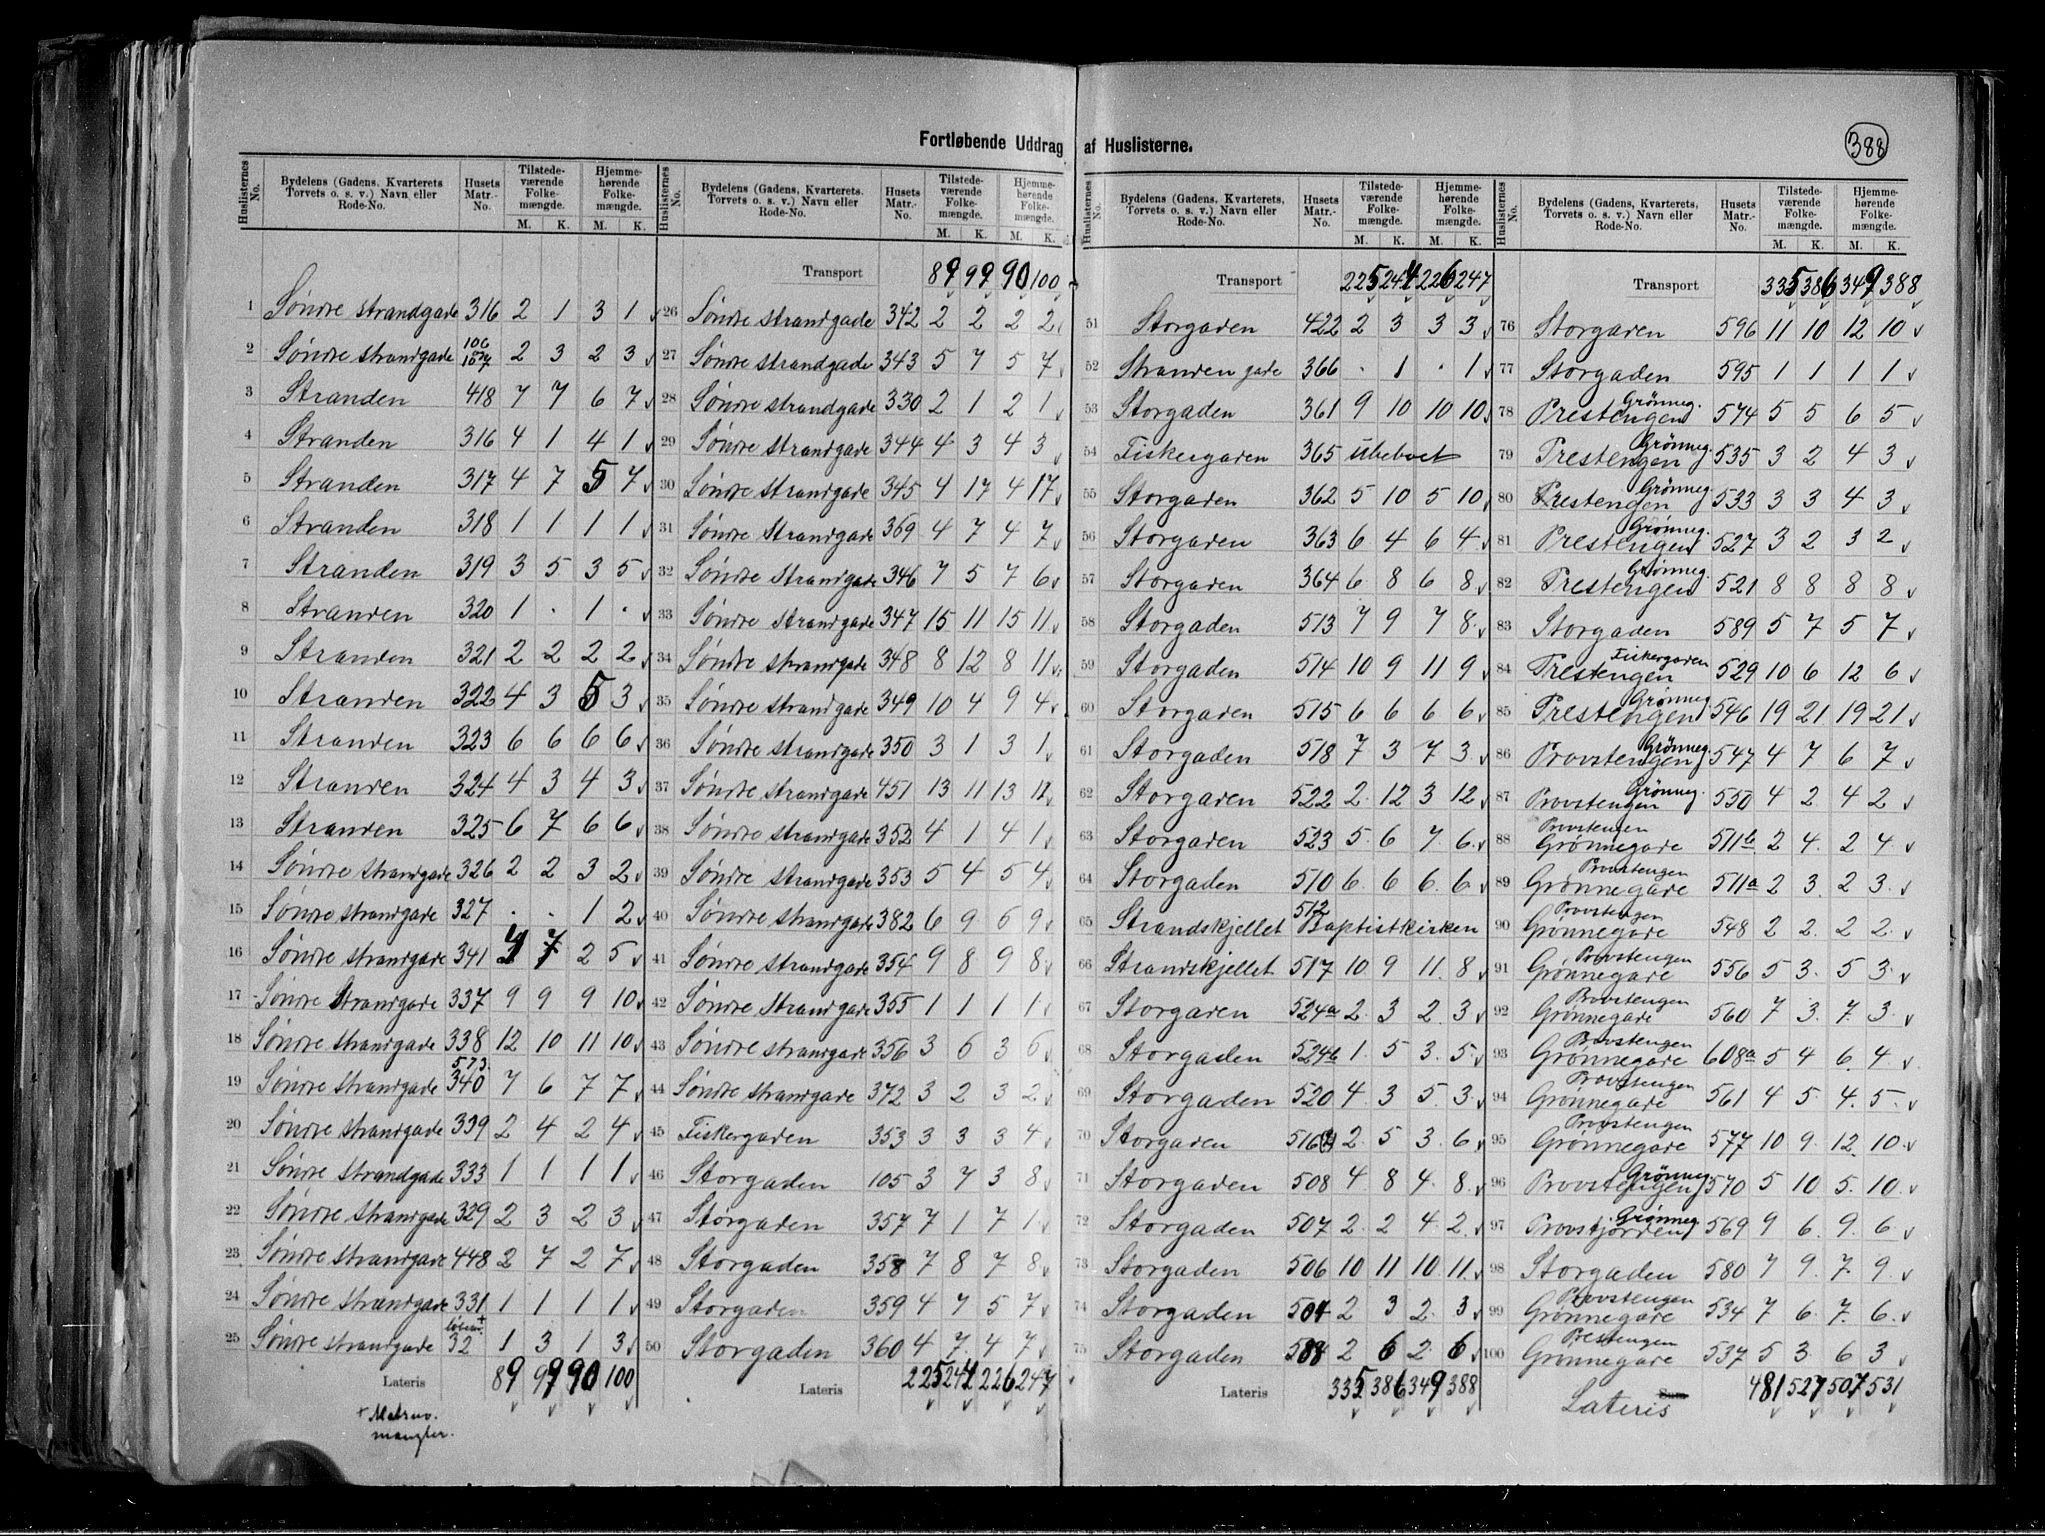 388
Fortløbende Uddrag af Huslisterne.
Huslisternes No. Bydelens (Gadens, Kvarterets Torvets o. s. v.) Navn eller Rode-No. Husets Matr.-No. Tilstede-værende Folke-mængde. M. K. Hjemme-hørende Folke-mængde. M. K.
1 Søndre Strandgade 316 2 1 3 1
2 Søndre Strandgade 106 107 2 3 2 3
3 Stranden 418 7 7 6 7
4 Stranden 316 4 1 4 1
5 Stranden 317 4 7 5 7
6 Stranden 318 1 1 1 1
7 Stranden 319 3 5 3 5
8 Stranden 320 1 . 1 .
9 Stranden 321 2 2 2 2
10 Stranden 322 4 3 5 3
11 Stranden 323 6 6 6 6
12 Stranden 324 4 3 4 3
13 Stranden 325 6 7 6 6
14 Søndre Strandgade 326 2 2 3 2
15 Søndre Strandgade 327 . . 1 2
16 Søndre Strandgade 341 7 2 5
17 Søndre Strandgade 337 9 9 9 10
18 Søndre Strandgade 338 12 10 11 10
19 Søndre Strandgade 573. 340 7 6 7 7
20 Søndre Strandgade 339 2 4 2 4
21 Søndre Strandgade 333 1 1 1 1
22 Søndre Strandgade 329 2 3 2 3
23 Søndre Strandgade 448 2 7 2 7
24 Søndre Strandgade 331 1 1 1 1
25 Søndre Strandgade 32 + 1 3 1 3
Lateris 89 99 90 100
+ Matrno. mangler.
Huslisternes No. Bydelens (Gadens, Kvarterets. Torvets o. s. v.) Navn eller Rode-No. Husets Matr.-No. Tilstede-værende Folke-mængde. M. K. Hjemme-hørende Folke-mængde. M. K.
Transport 89 99 90 100
26 Søndre Strandgade 342 2 2 2 2
27 Søndre Strandgade 343 5 7 5 7
28 Søndre Strandgade 330 2 1 2 1
29 Søndre Strandgade 344 4 3 4 3
30 Søndre Strandgade 345 4 17 4 17
31 Søndre Strandgade 369 4 7 4 7
32 Søndre Strandgade 346 7 5 7 6
33 Søndre Strandgade 347 15 11 15 11
34 Søndre Strandgade 348 8 12 8 11
35 Søndre Strandgade 349 10 4 9 4
36 Søndre Strandgade 350 3 1 3 1
37 Søndre Strandgade 451 13 11 13 11
38 Søndre Strandgade 352 4 1 4 1
39 Søndre Strandgade 353 5 4 5 4
40 Søndre Strandgade 382 6 9 6 9
41 Søndre Strandgade 354 9 8 9 8
42 Søndre Strandgade 355 1 1 1 1
43 Søndre Strandgade 356 3 6 3 6
44 Søndre Strandgade 372 3 2 3 2
45 Fiskergaden 353 3 3 3 4
46 Storgaden 105 3 7 3 8
47 Storgaden 357 7 1 7 1
48 Storgaden 358 7 8 7 8
49 Storgaden 359 4 7 5 7
50 Storgaden 360 4 7 4 7
Lateris 225 244 226 247
Huslisternes No. Bydelens (Gadens, Kvarterets, Torvets o. s. v.) Navn eller Rode-No. Husets Matr.-No. Tilstede-værende Folke-mængde. M. K. Hjemme-hørende Folke-mængde. M. K.
Transport 225 244 226 247
51 Storgaden 422 2 3 3 3
52 Stranden gade 366 . 1 . 1
53 Storgaden 361 9 10 10 10
54 Fiskergaden 365 Ubeboet
55 Storgaden 362 5 10 5 10
56 Storgaden 363 6 4 6 4
57 Storgaden 364 6 8 6 8
58 Storgaden 513 7 9 7 8
59 Storgaden 514 10 9 11 9
60 Storgaden 515 6 6 6 6
61 Storgaden 518 7 3 7 3
62 Storgaden 522 2 12 3 12
63 Storgaden 523 5 6 7 6
64 Storgaden 510 6 6 6 6
65 Strandskjellet 512 Baptistkirken
66 Strandskjellet 517 10 9 11 8
67 Storgaden 524a 2 3 2 3
68 Storgaden 524b 1 5 3 5
69 Storgaden 520 4 3 5 3
70 Storgaden 516 2 5 3 6
71 Storgaden 508 4 8 4 8
72 Storgaden 507 2 2 4 2
73 Storgaden 506 10 11 10 11
74 Storgaden 504 2 3 2 3
75 Storgaden 588 2 6 2 6
Lateris 335 386 349 388
Huslisternes No. Bydelens (Gadens, Kvarterets, Torvets o. s. v.) Navn eller Rode-No. Husets Matr.-No. Tilstede-værende Folke-mængde. M. K. Hjemme-hørende Folke-mængde. M. K.
Transport 335 386 349 388
76 Storgaden 596 11 10 12 10
77 Storgaden 595 1 1 1 1
78 Prestengen Grönneg. 574 5 5 6 5
79 Prestengen Grönneg. 535 3 2 4 3
80 Prestengen Grönneg. 533 3 3 4 3
81 Prestengen Grönneg. 527 3 2 3 2
82 Prestengen Grönneg. 521 8 8 8 8
83 Storgaden 589 5 7 5 7
84 Prestengen Fiskergaden 529 10 6 12 6
85 Prestengen Grönneg. 546 19 21 19 21
86 Provstengen Grönneg. 547 4 7 6 7
87 Provstengen Grönneg. 550 4 2 4 2
88 Provstengen Grønnegade 511b 2 4 2 4
89 Provstengen Grønnegade 511a 2 3 2 3
90 Provstengen Grønnegade 548 2 2 2 2
91 Provstengen Grønnegade 556 5 3 5 3
92 Provstengen Grønnegade 560 7 3 7 3
93 Provstengen Grønnegade 608a 5 4 6 4
94 Provstengen Grønnegade 561 4 5 4 5
95 Provstengen Grønnegade 577 10 9 12 10
96 Provstengen Grönneg. 570 5 10 5 10
97 Provstjorden Grönneg. 569 9 6 9 6
98 Storgaden 580 7 9 7 9
99 Provstengen Grønnegade 534 7 6 7 6
100 Prestengen Grønnegade 537 5 3 6 3
Sum Lateris 481 527 507 531